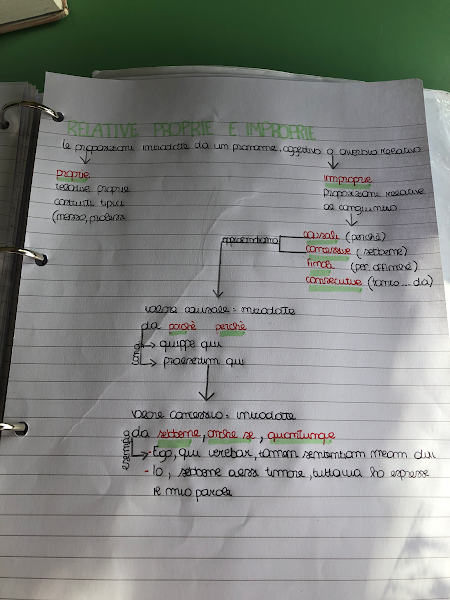 RELATIVE PROPRIE E IMPROPRIE
le proposizioni introdotte da un pronome, aggettivo o avverbio relativo
proprie
relative proprie
costrutti tipici
(nesso, prolessi
improprie
proposizioni relative
al congiuntivo
approfondiamo
causali (perchè)
concessive (sebbene)
finali (per, affinchè)
consecutive (tanto... da)
valore causale = introdotte
da poichè perchè
quippe qui
praesertim qui
valore concessivo = introdotte
da sebbene, anche se, quantunque
esempio
- Ego, qui verebar, tamen sententiam meam dixi
- Io, sebbene avessi timore, tuttavia ho espresso
le mie parole